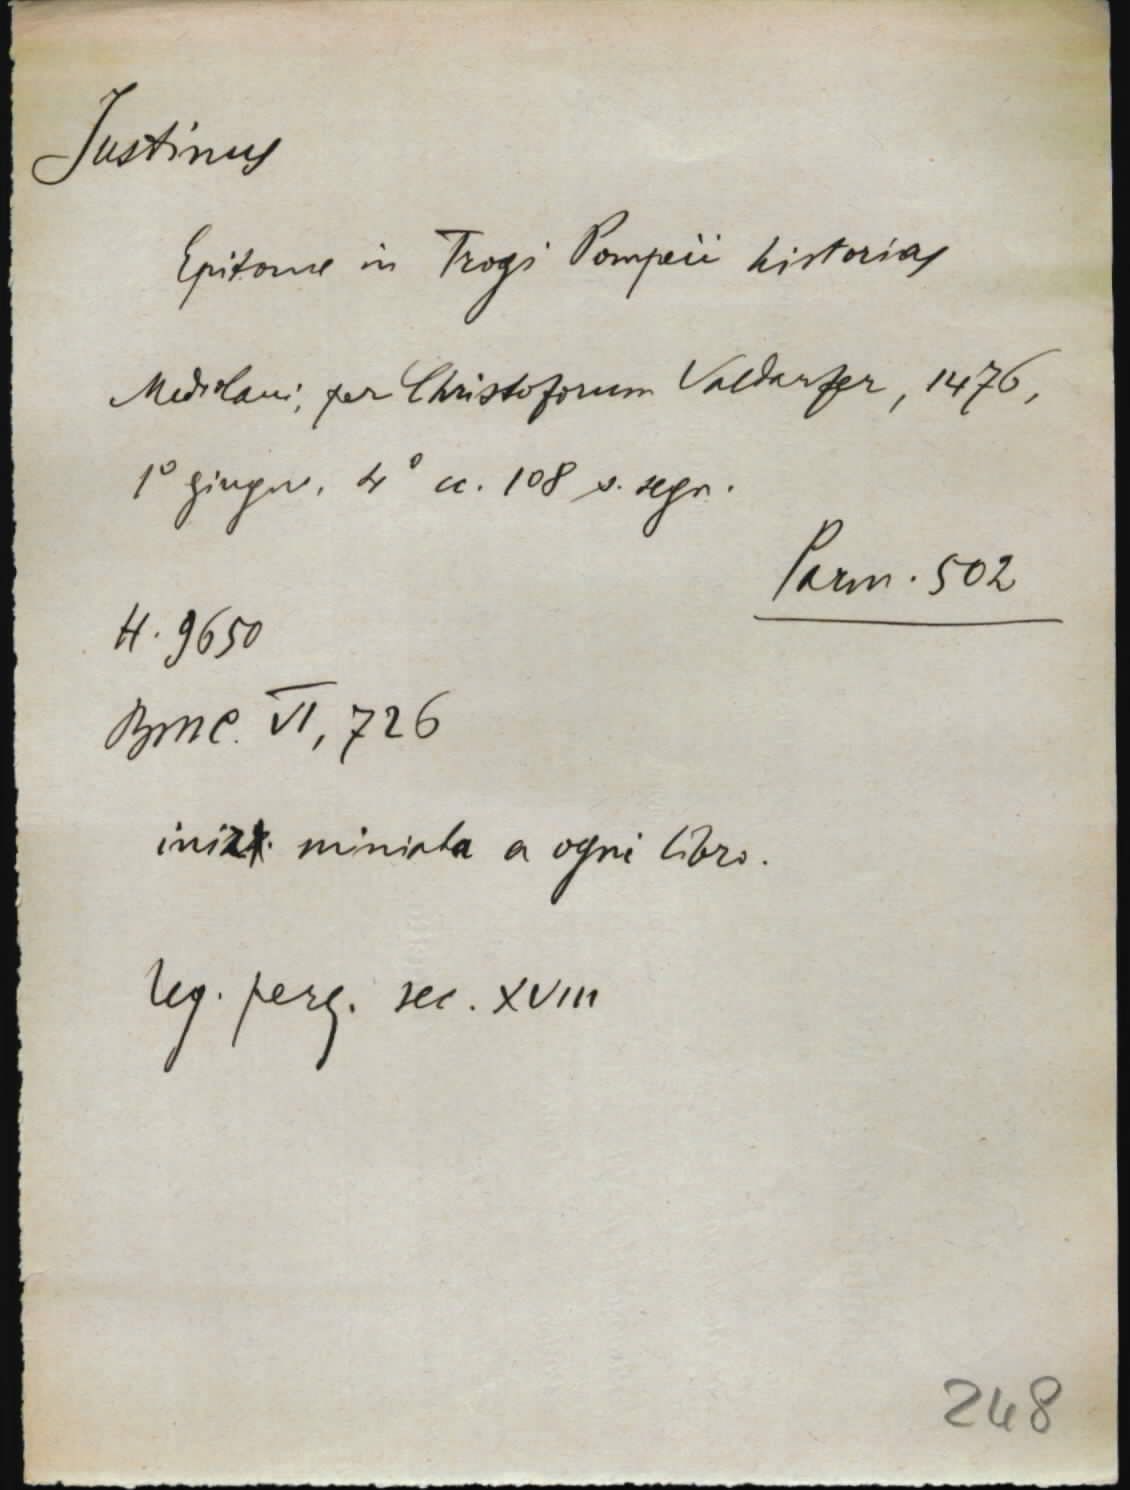 Justinus
Epitome in Trogi Pompeii historias
Mediolani, per Christoforum Valdarfer, 1476,
1° giugno. 4° cc. 108 s. segn.
Parm. 502
H. 9650
BMC. VI, 726
iniz. miniata a ogni libro.
leg. perg. sec. XVIII
248